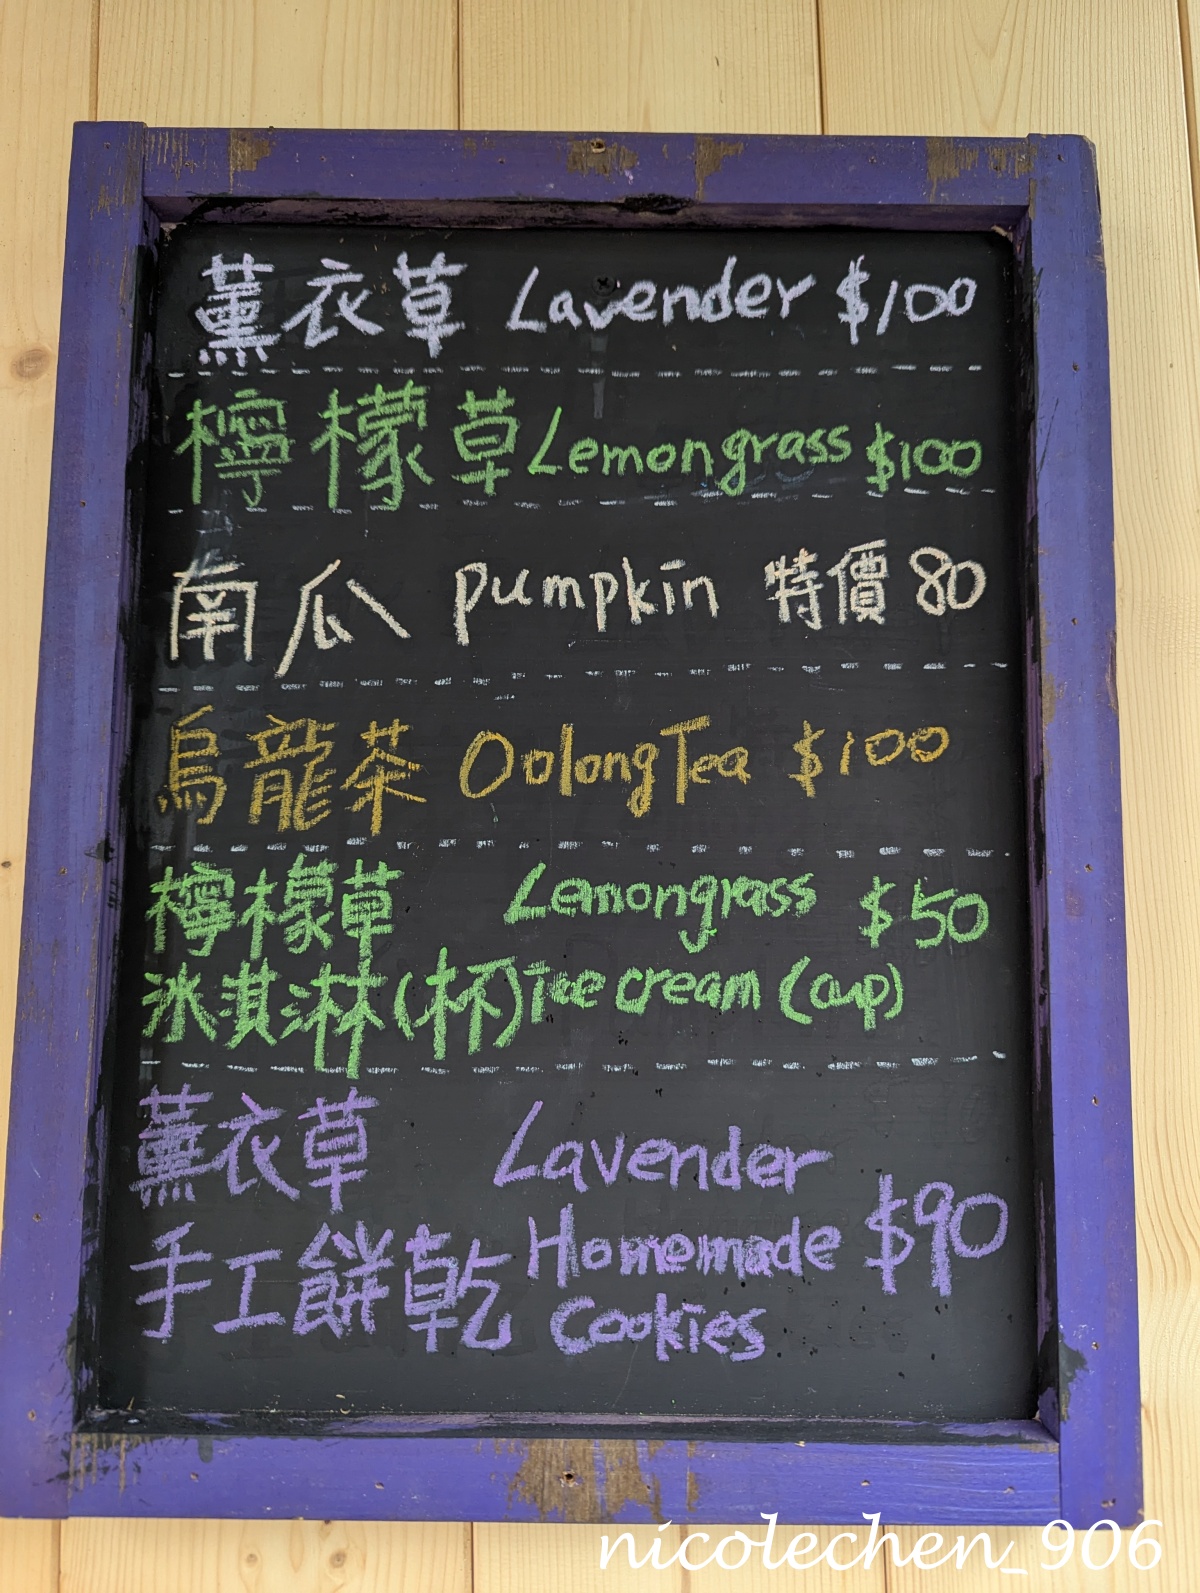 薰衣草 Lavender $100
檸檬草 Lemongrass $100
南瓜 pumpkin 特價 80
烏龍茶 Oolong Tea $100
檸檬草 Lemongrass $50
冰淇淋(杯) Ice cream (cup)
薰衣草 Lavender
手工餅乾 Homemade $90
Cookies
nicolechen_906